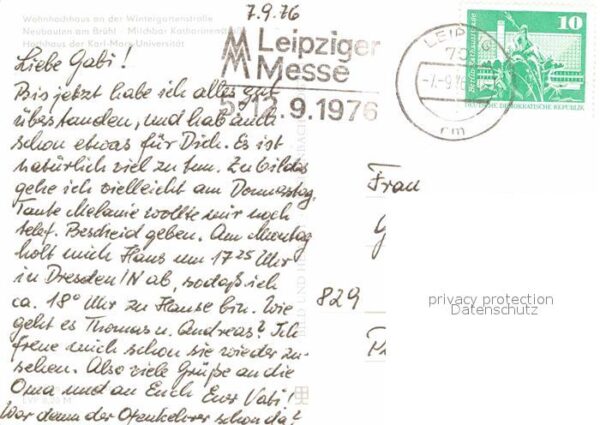 7.9.76
Wohnhochhaus an der Wintergartenstraße
Neubauten am Brühl - Milchbar Katharinenstraße
Hochhaus der Karl-Marx-Universität
Leipziger
Messe
5.-12.9.1976
LEIPZIG
-7.-9.76
rm
10
Berlin, Neptunbrunnen
DEUTSCHE DEMOKRATISCHE REPUBLIK
Liebe Gabi!
Bis jetzt habe ich alles gut
überstanden, und hab auch
schon etwas für Dich. Es ist
natürlich viel zu tun. Zu Gildas
gehe ich vielleicht am Donnerstag,
Tante Melanie wollte mir noch
telef. Bescheid geben. Am Montag
holt mich Hans um 17 25 Uhr
in Dresden/N ab, sodaß ich
ca. 18° Uhr zu Hause bin. Wie
geht es Thomas u. Andreas? Ich
freue mich schon sie wieder zu-
sehen. Also viele Grüße an die
Oma und an Euch Euer Vati!
War denn der Ofenkehrer schon da?
Frau
829
privacy protection
Datenschutz